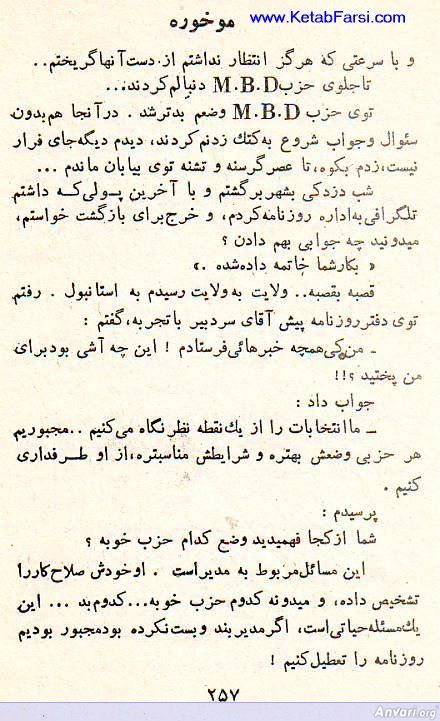 www.KetabFarsi.com
موخوره
و با سرعتی که هرگز انتظار نداشتم از دست آنها گریختم..
تاجلوی حزب M.B.D دنبالم کردند...
توی حزب M.B.D وضعم بدتر شد . در آنجا هم بدون
سئوال و جواب شروع به کتك زدنم کردند، دیدم دیگه جای فرار
نیست، زدم بکوه، تا عصر گرسنه و تشنه توی بیابان ماندم ...
شب دزدکی بشهر برگشتم و با آخرین پولی که داشتم
تلگرافی به اداره روزنامه کردم، و خرج برای بازگشت خواستم،
میدونید چه جوابی بهم دادن ؟
« بکار شما خاتمه داده شده .»
قصبه بقصبه.. ولایت به ولایت رسیدم به استانبول . رفتم
توی دفتر روزنامه پیش آقای سردبیر با تجربه، گفتم :
ـ من کی همچه خبرهائی فرستادم ! این چه آشی بود برای
من پختید ؟!!
جواب داد :
ـ ما انتخابات را از یك نقطه نظر نگاه می کنیم .. مجبوریم
هر حزبی وضعش بهتره و شرایطش مناسبتره، از او طرفداری
کنیم .
پرسیدم :
شما از کجا فهمیدید وضع کدام حزب خوبه ؟
این مسائل مربوط به مدیر است . او خودش صلاح کار را
تشخیص داده، و میدونه کدوم حزب خوبه... کدوم بد ... این
یك مسئله حیاتی است، اگر مدیر بند و بست نکرده بود مجبور بودیم
روزنامه را تعطیل کنیم !
۲۵۷
Anvari.org